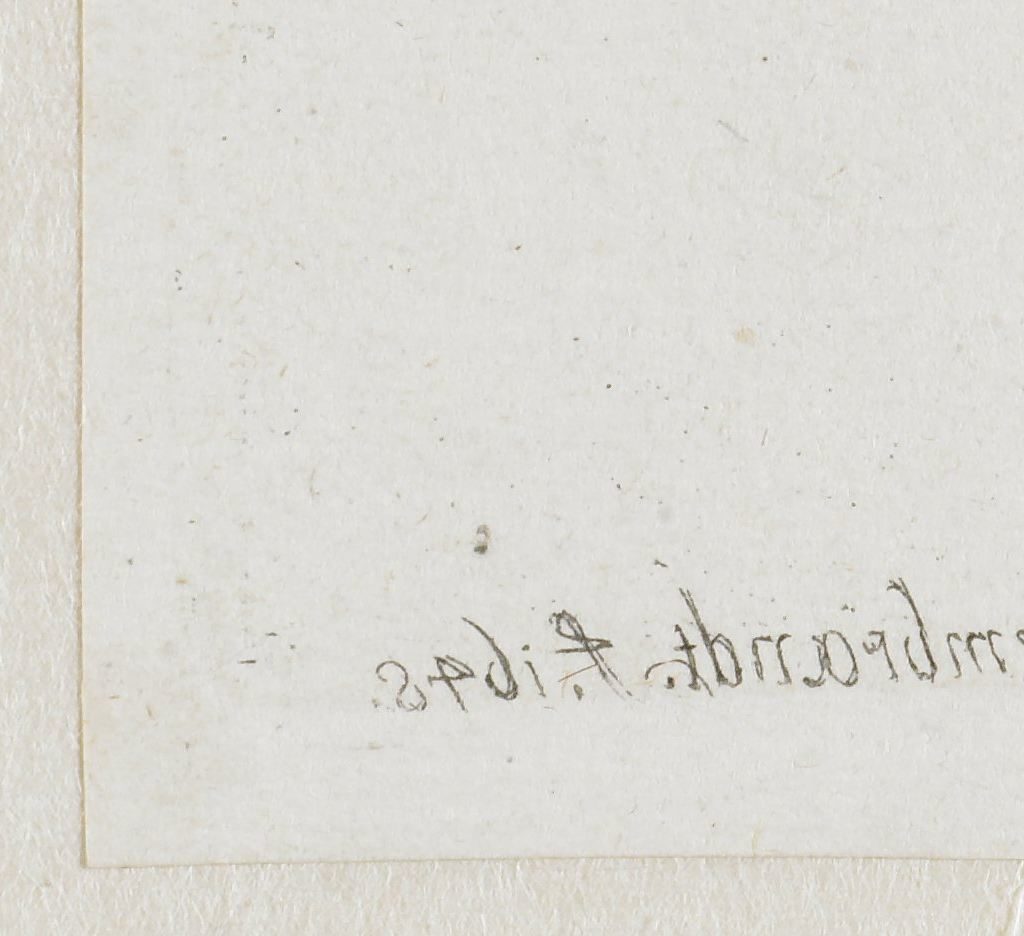 mbrandt. f. 1645